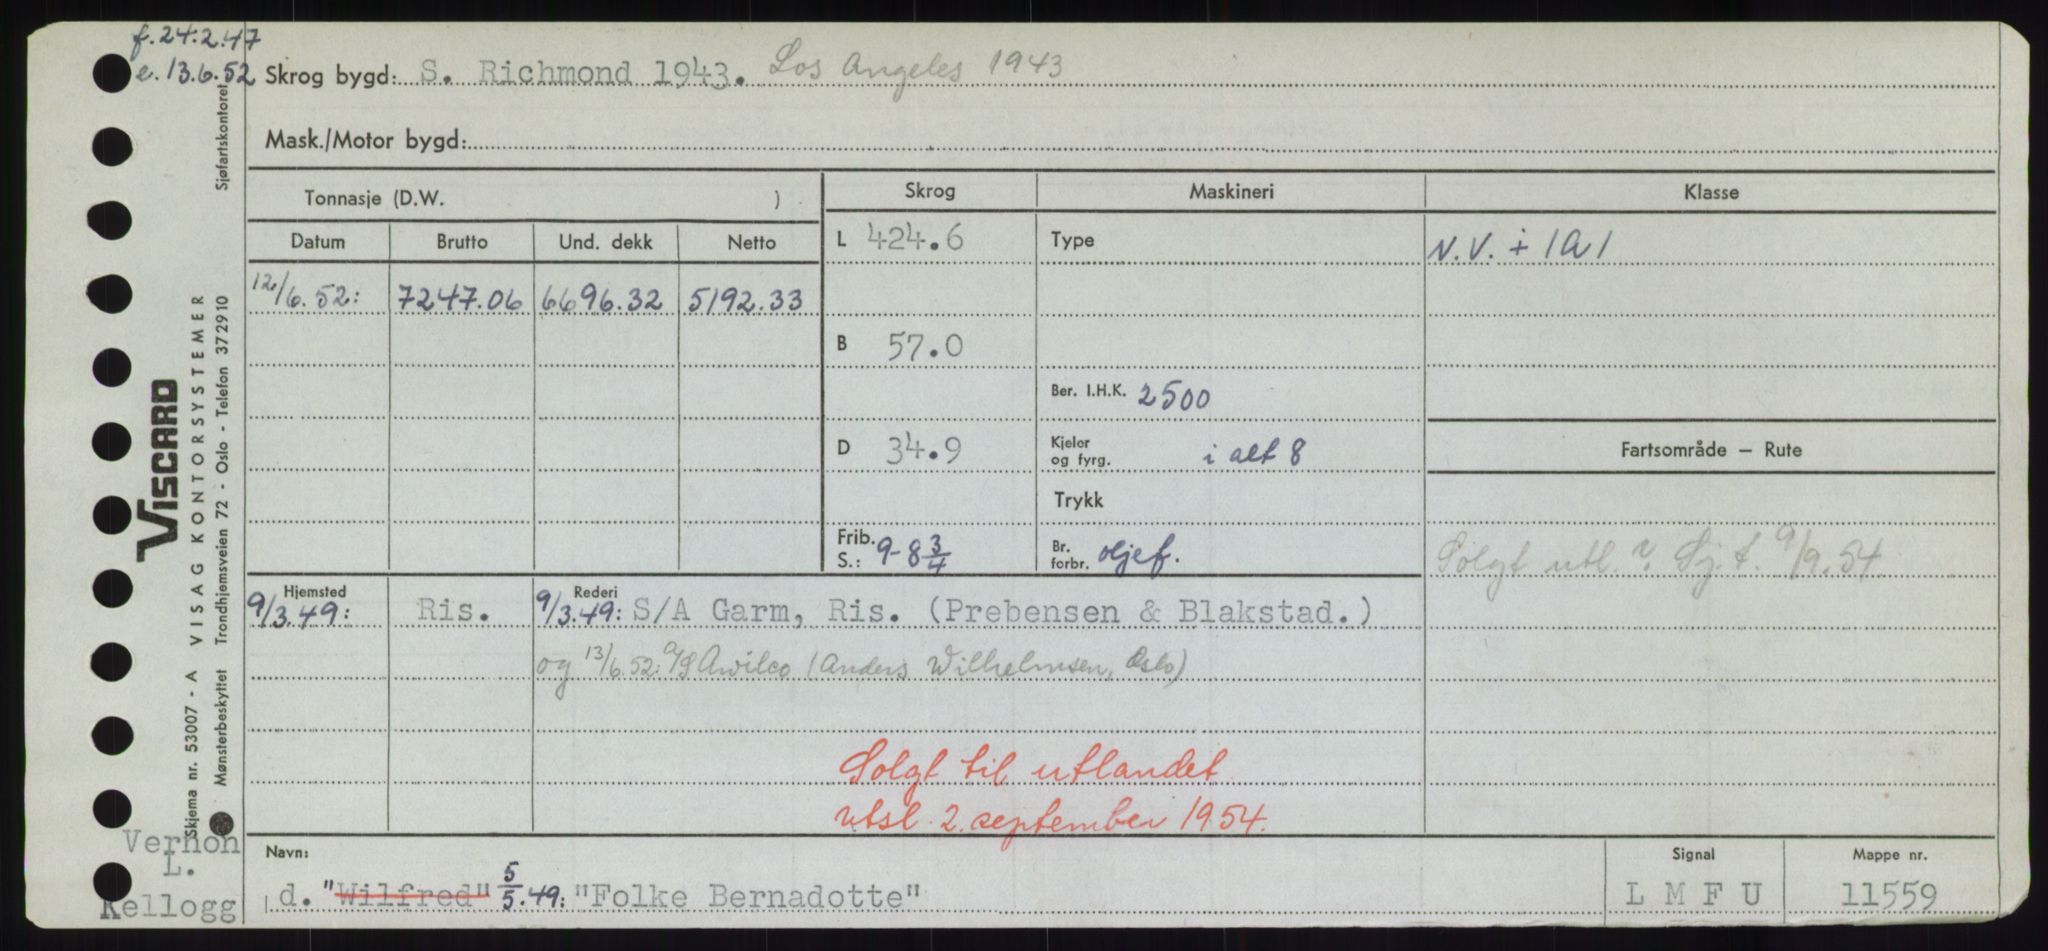 f. 24.2.47
e. 13.6.52
Skrog bygd: S. Richmond 1943. Los Angeles 1943
Mask./Motor bygd:
Tonnasje (D.W. )
Skrog Maskineri Klasse
Datum Brutto Und. dekk Netto
L 424.6 Type N.V. + 1A1
12/6.52: 7247.06 6696.32 5192.33
B 57.0
Ber. I.H.K. 2500
D 34.9 Kjeler og fyrg. i alt 8
Fartsområde — Rute
Trykk
Frib. S.: 9-8 3/4 Br. forbr. oljef.
Solgt utl. ? Sj.t. 9/9.54
Hjemsted Rederi
9/3.49: Ris. 9/3.49: S/A Garm, Ris. (Prebensen & Blakstad.)
og 13/6.52: A/S Awilco (Anders Wilhelmsen, Oslo)
Solgt til utlandet
utsl. 2. september 1954.
Navn: Signal Mappe nr.
d. "Wilfred" 5/5.49: "Folke Bernadotte" L M F U 11559
Vernon
L.
Kellogg
VISCARD
Skjema nr. 53007 - A VISAG KONTORSYSTEMER
Mønsterbeskyttet Trondhjemsveien 72 - Oslo - Telefon 372910 Sjøfartskontoret